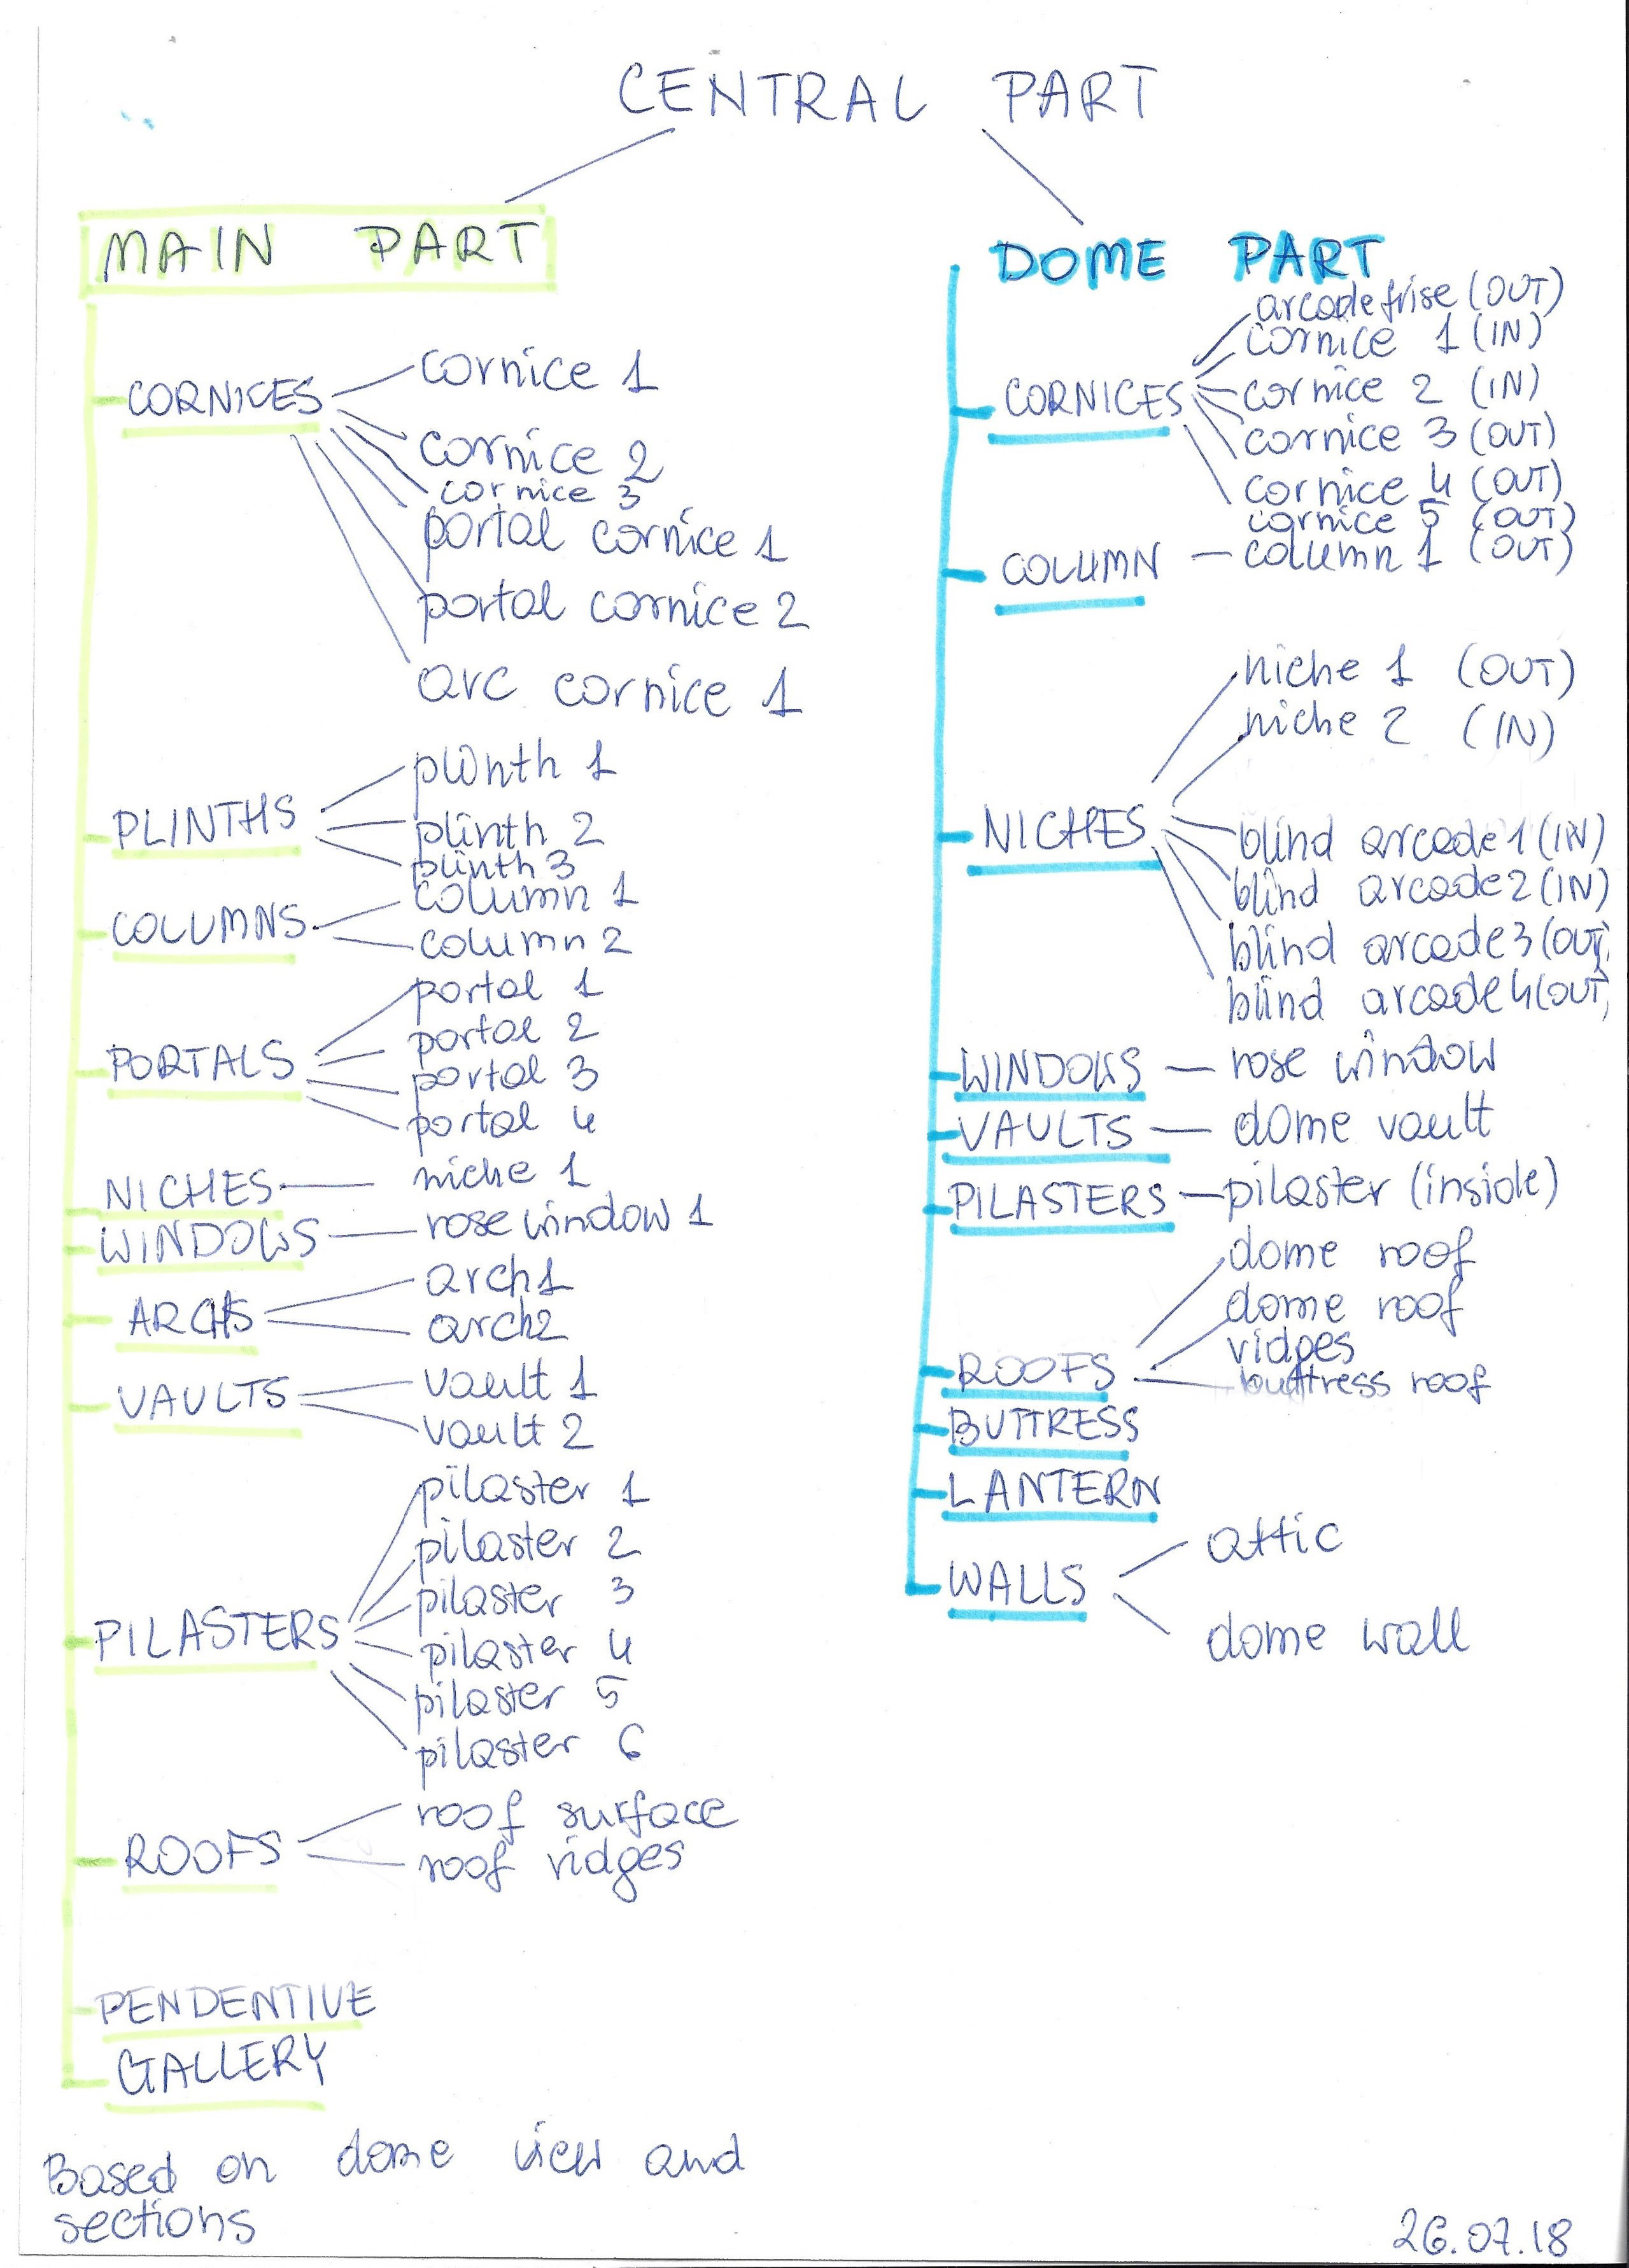 CENTRAL PART
MAIN PART
CORNICES
cornice 1
cornice 2
cornice 3
portal cornice 1
portal cornice 2
arc cornice 1
PLINTHS
plinth 1
plinth 2
plinth 3
COLUMNS
column 1
column 2
PORTALS
portal 1
portal 2
portal 3
portal 4
NICHES
niche 1
WINDOWS
rose window 1
ARCHS
arch1
arch2
VAULTS
vault 1
vault 2
PILASTERS
pilaster 1
pilaster 2
pilaster 3
pilaster 4
pilaster 5
pilaster 6
ROOFS
roof surface
roof ridges
PENDENTIVE
GALLERY
DOME PART
CORNICES
arcade frise (OUT)
cornice 1 (IN)
cornice 2 (IN)
cornice 3 (OUT)
cornice 4 (OUT)
cornice 5 (OUT)
COLUMN
column 1 (OUT)
NICHES
niche 1 (OUT)
niche 2 (IN)
blind arcade 1 (IN)
blind arcade 2 (IN)
blind arcade 3 (OUT)
blind arcade 4 (OUT)
WINDOWS
rose window
VAULTS
dome vault
PILASTERS
pilaster (inside)
ROOFS
dome roof
dome roof
ridges
buttress roof
BUTTRESS
LANTERN
WALLS
attic
dome wall
Based on dome view and
sections
26.07.18